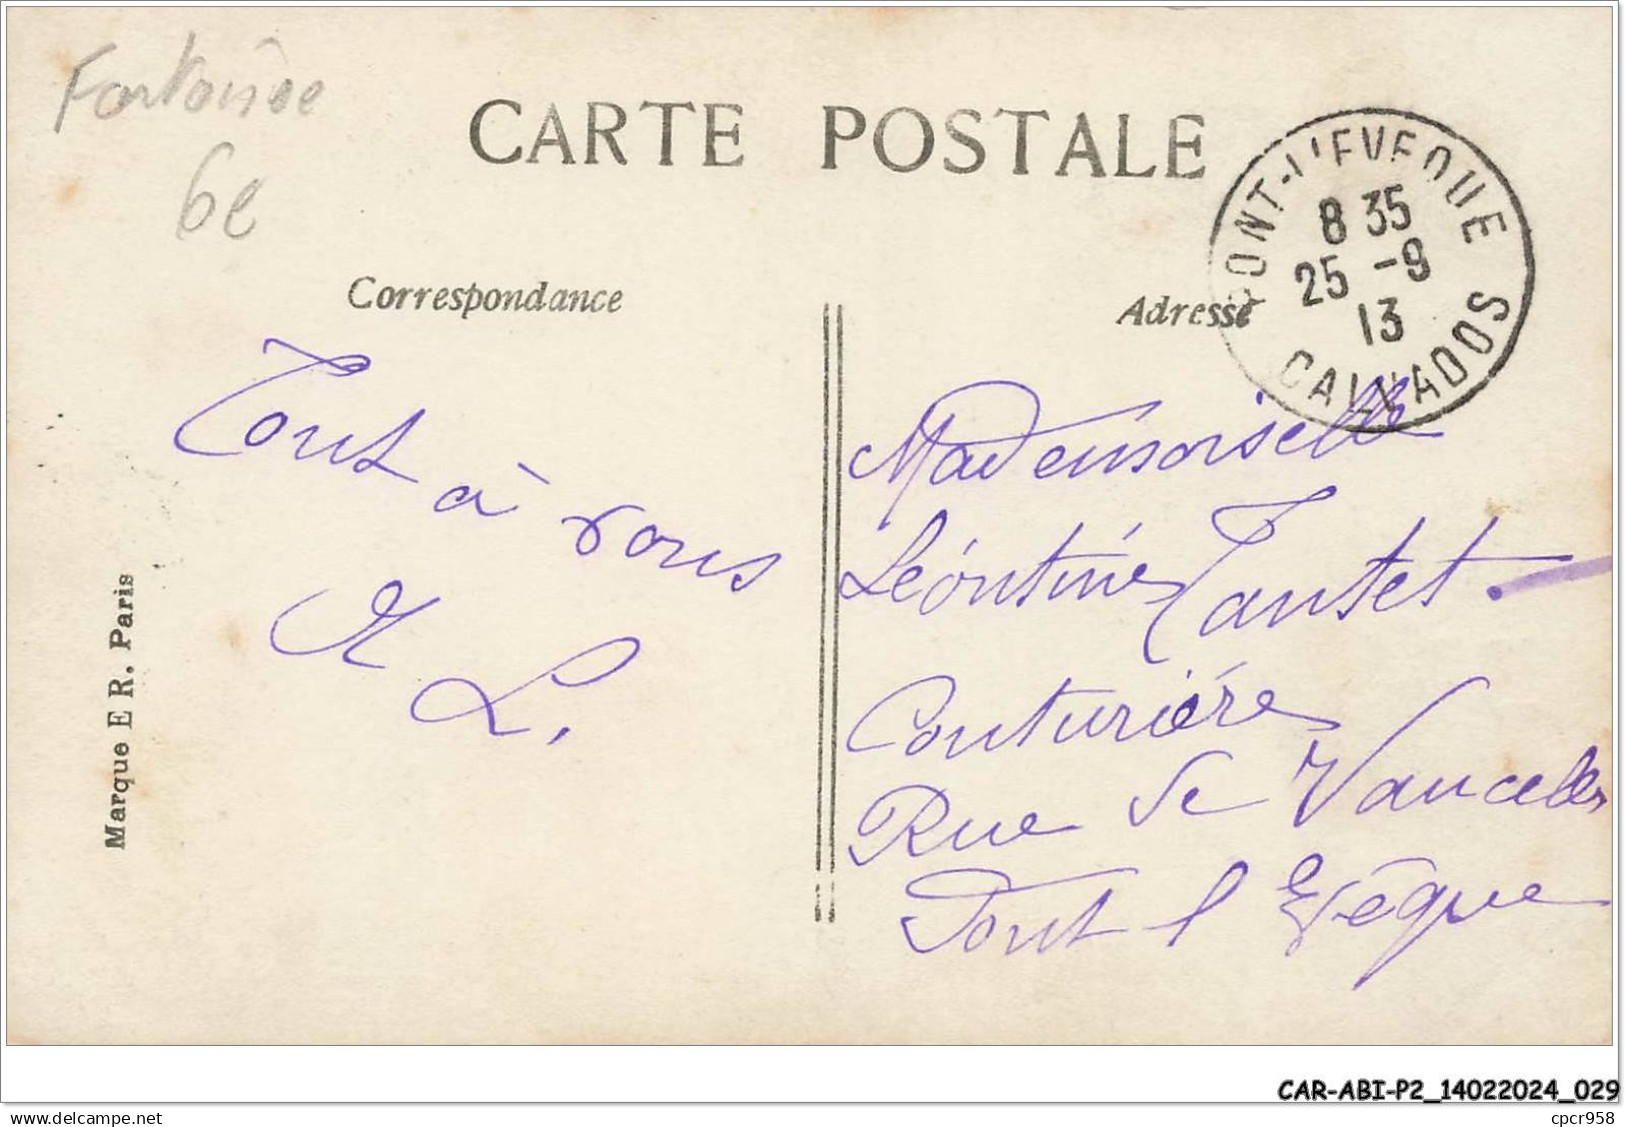 Fantaisie
6e
CARTE POSTALE
PONT-L'EVEQUE
8 35
25 -9
13
CALVADOS
Correspondance
Adresse
Tout
à vous
L.
Mademoiselle
Léontine Tautet.
Couturière
Rue de Vaucelles
Pont l Evêque
Marque E R. Paris
CAR-ABI-P2_14022024_029
www.delcampe.net
cpcr958